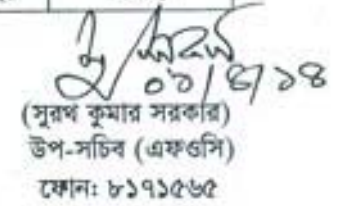 ০১/৪/১৪
(সুরথ কুমার সরকার)
উপ-সচিব (এফওসি)
ফোন: ৮১৭১৫৬৫